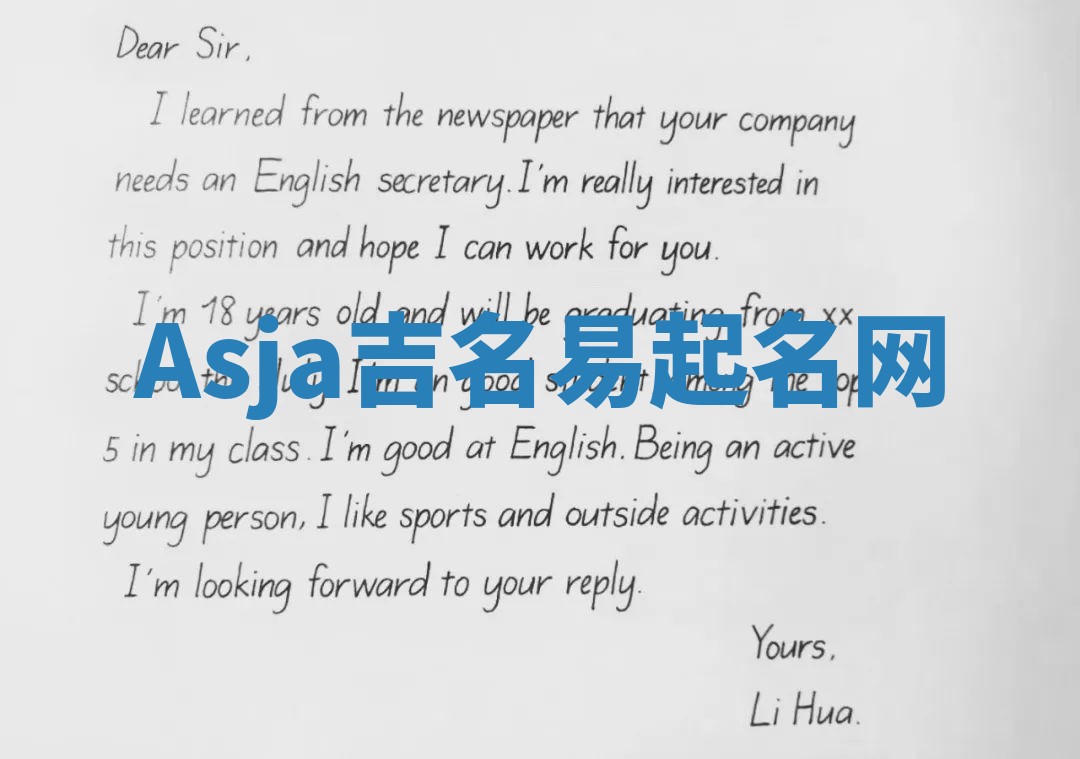 Dear Sir,
I learned from the newspaper that your company
needs an English secretary. I'm really interested in
this position and hope I can work for you.
I'm 18 years old and will be graduating from xx
Asja吉名易起名网
I'm an good student among the top
5 in my class. I'm good at English. Being an active
young person, I like sports and outside activities.
I'm looking forward to your reply.
Yours,
Li Hua.